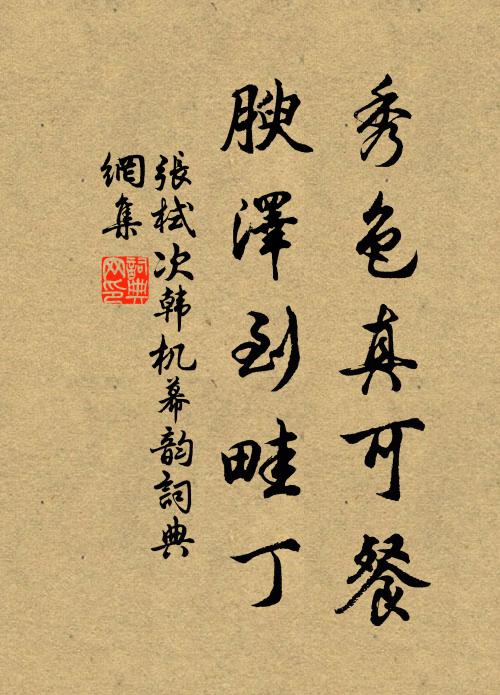 秀色真可餐
腴澤到畦丁
張栻次韩机幕韵詞典
網集
詞典網印